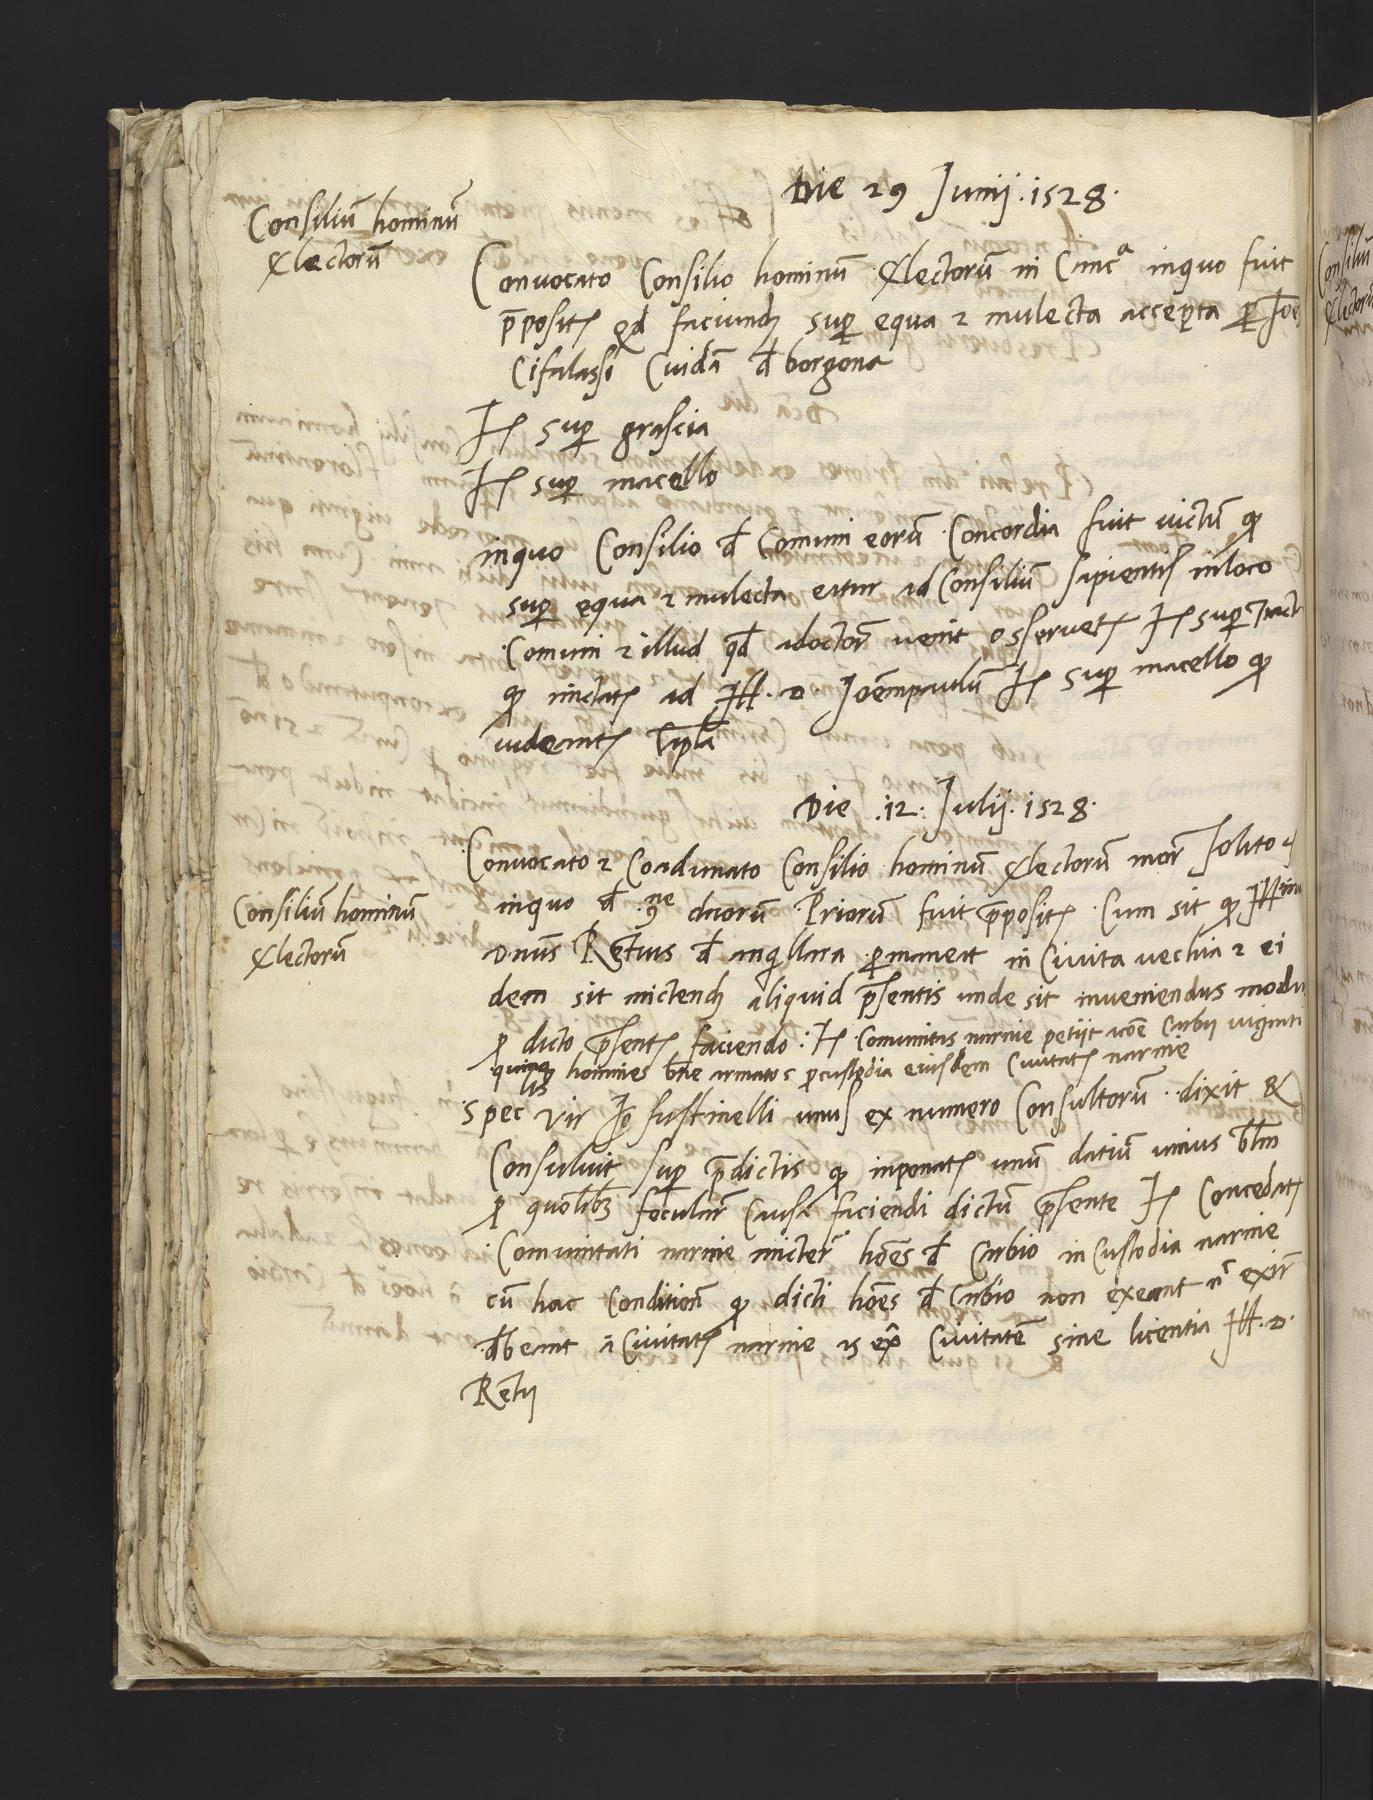 Die 29 Junij. 1528.
Consiliū hominū
Electorū
Convocato Consilio hominū Electorū in Canc.ª inquo fuit
p̄posit, qd faciend, sup equa & mulecta accepta p Joē
Cifalassi Cuidā d̄ borgona
It, sup grascia
It, sup macello
inquo Consilio d̄ Comuni eorū Concordia fuit victū q
sup equa & mulecta eatur ad Consiliū sapientis in loco
Comuni & illud qd adoctor̄ venit osservet, It, sup
q mictat, ad Ill. D Joēmpaulū It, sup macello q
videant,
Die .12. Julij. 1528.
Convocato & Coadunato Consilio hominū Electorū mor̄ solito &
Consiliū hominū
Electorū
inquo d̄ dnorū Priorū fuit p̄posit, Cum sit q Ill
D.nūs Rētius d̄ anguillara pmaneat in Civita vechia & ei
dem sit mictend, aliquid p̄sentis unde sit inveniendus modu
p dicto p̄sent, faciendo: It, Comunitas narnie petiit Cubij viginti
quinq homines bn̄e armatos p custodia eiusdem Civitat, narnie
Spec.lis Vir Jo fustinelli unus ex numero Consultorū dixit &
Consuluit sup p̄dictis q inponat, unū datiū unius
p quolibz foculari Causa faciendi dictū p̄sente It, Concedat,
Comunitati narnie micter̄ hoēs d̄ Curbio in Custodia narnie
cū hac Condition̄ q dicti hoēs d̄ Curbio non exeant n̄ exir̄
d̄beant ā Civitat, narnie Civitatē sine licentia Ill. D.
Retij